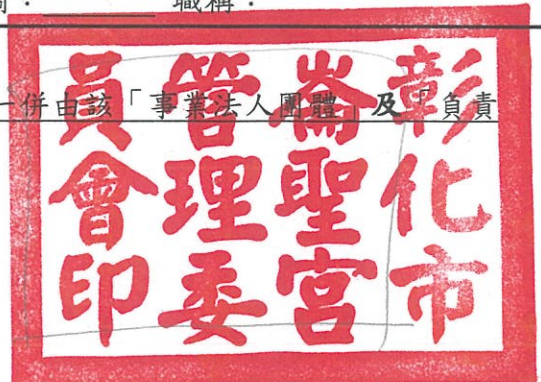 職稱：
一併由該「事業法人團體」及「負責
彰化市
崙聖宮
管理委
員會印